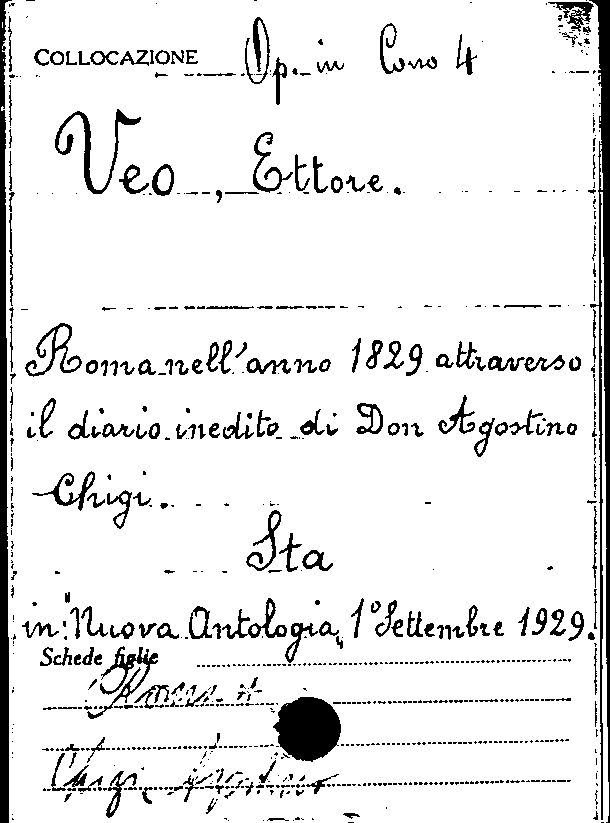 COLLOCAZIONE Op. in Cono 4
Veo, Ettore.
Roma nell'anno 1829 attraverso
il diario inedito di Don Agostino
Chigi.
Sta
in: "Nuova Antologia" 1° Settembre 1929.
Schede figlie
Roma
Chigi, Agostino